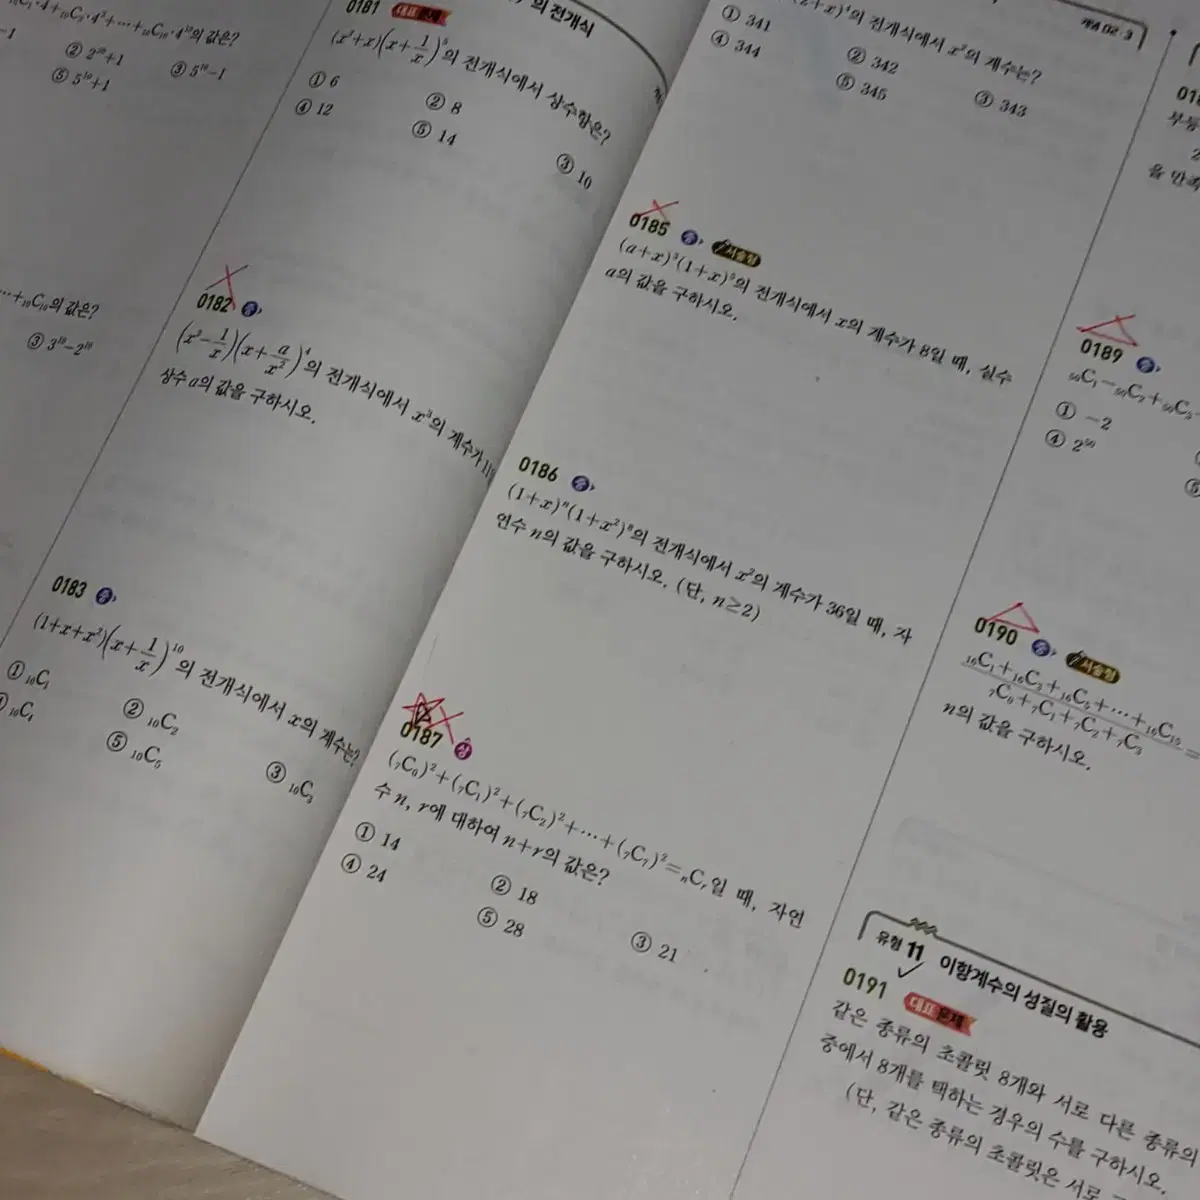 ·4+₁₀C₂·4²+⋯+₁₀C₁₀·4¹⁰의 값은?
② 2²⁰+1
③ 5¹⁰−1
⑤ 5¹⁰+1
⋯+₁₀C₁₀의 값은?
③ 3¹⁰−2¹⁰
의 전개식
0181 대표 문제
의 전개식에서 상수항은?
① 6
② 8
③ 10
④ 12
⑤ 14
0182 중
(x²−1/x)(x+a/x²)⁴의 전개식에서 x³의 계수가
상수 a의 값을 구하시오.
0183 중
(1+x+x²)(x+1/x)¹⁰의 전개식에서 x의 계수는?
① ₁₀C₁
② ₁₀C₂
③ ₁₀C₃
④ ₁₀C₄
⑤ ₁₀C₅
의 전개식에서 x²의 계수는?
① 341
② 342
③ 343
④ 344
⑤ 345
0185 중 서술형
(a+x)³(1+x)⁵의 전개식에서 x의 계수가 8일 때, 실수
a의 값을 구하시오.
0186 중
(1+x)ⁿ(1+x²)ⁿ의 전개식에서 x²의 계수가 36일 때, 자
연수 n의 값을 구하시오. (단, n≥2)
0187 상
(₇C₀)²+(₇C₁)²+(₇C₂)²+⋯+(₇C₇)²=ₙCᵣ일 때, 자연
수 n, r에 대하여 n+r의 값은?
① 14
② 18
③ 21
④ 24
⑤ 28
0189 중
₅₀C₁−₅₀C₂+₅₀C₃
① −2
④ 2⁵⁰
0190 중 서술형
n의 값을 구하시오.
유형 11 이항계수의 성질의 활용
0191 대표 문제
같은 종류의 초콜릿 8개와 서로 다른 종류의
중에서 8개를 택하는 경우의 수를 구하시오.
(단, 같은 종류의 초콜릿은 서로